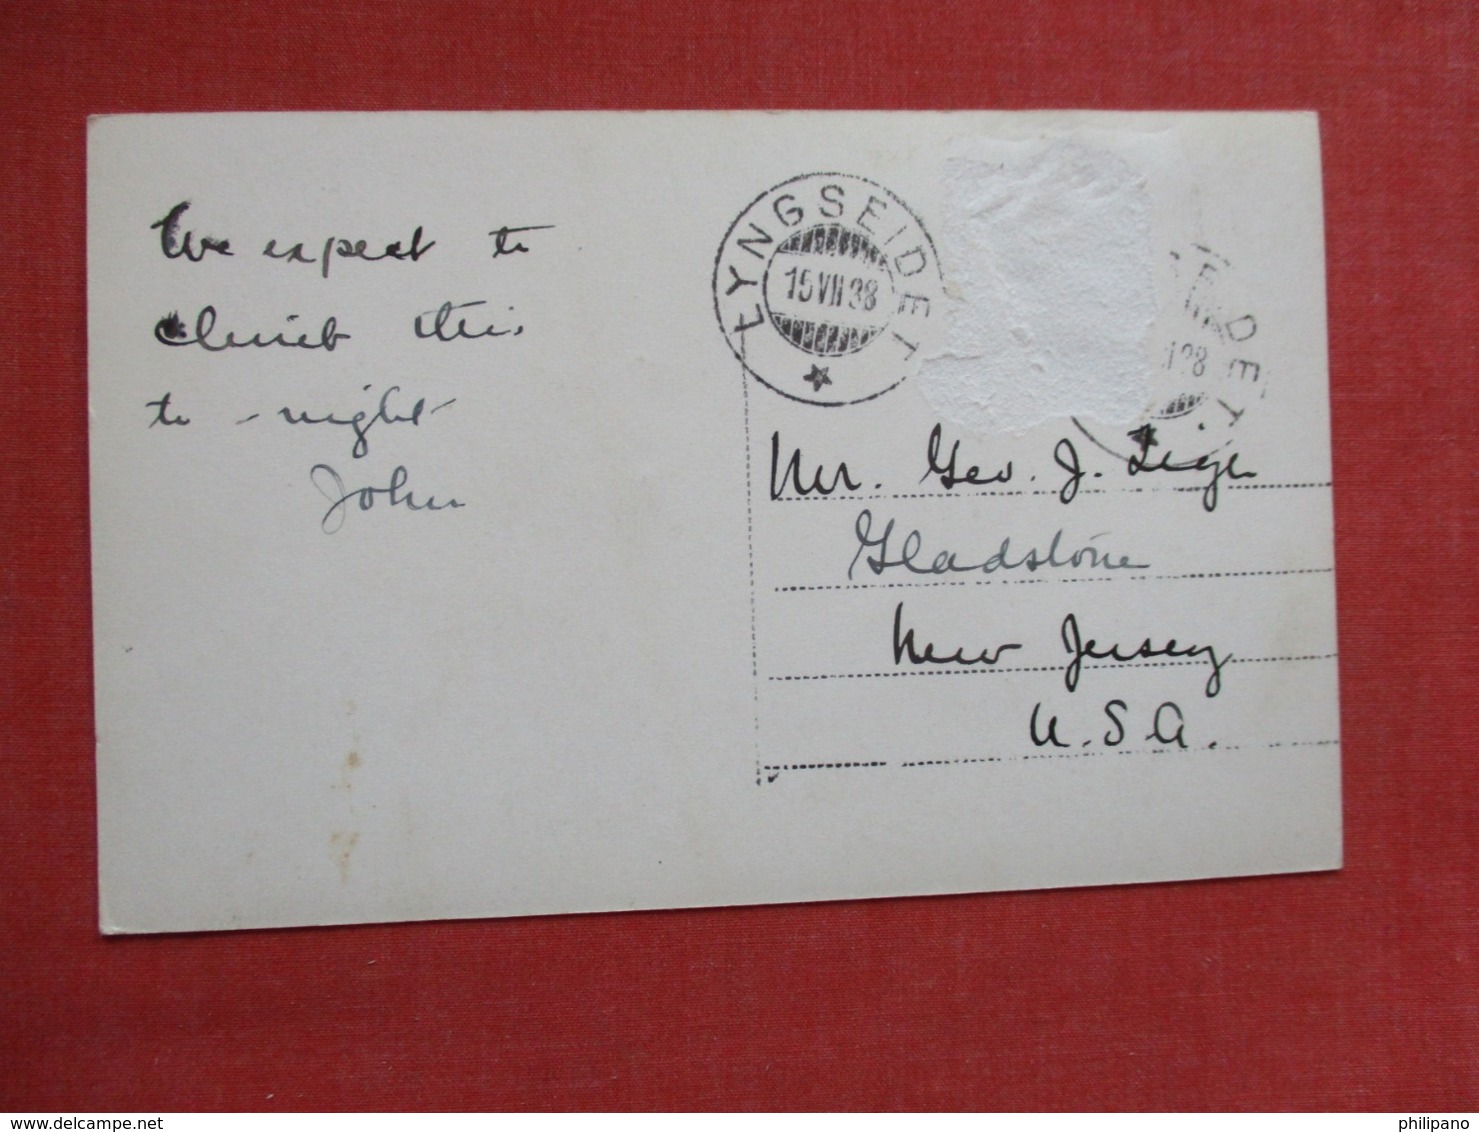 We expect to
climb this
to-night
John
LYNGSEIDET
15 VII 38
DET
38
Mr. Geo. J.
Gladstone
New Jersey
U.S.A.
philipano
delcampe.net